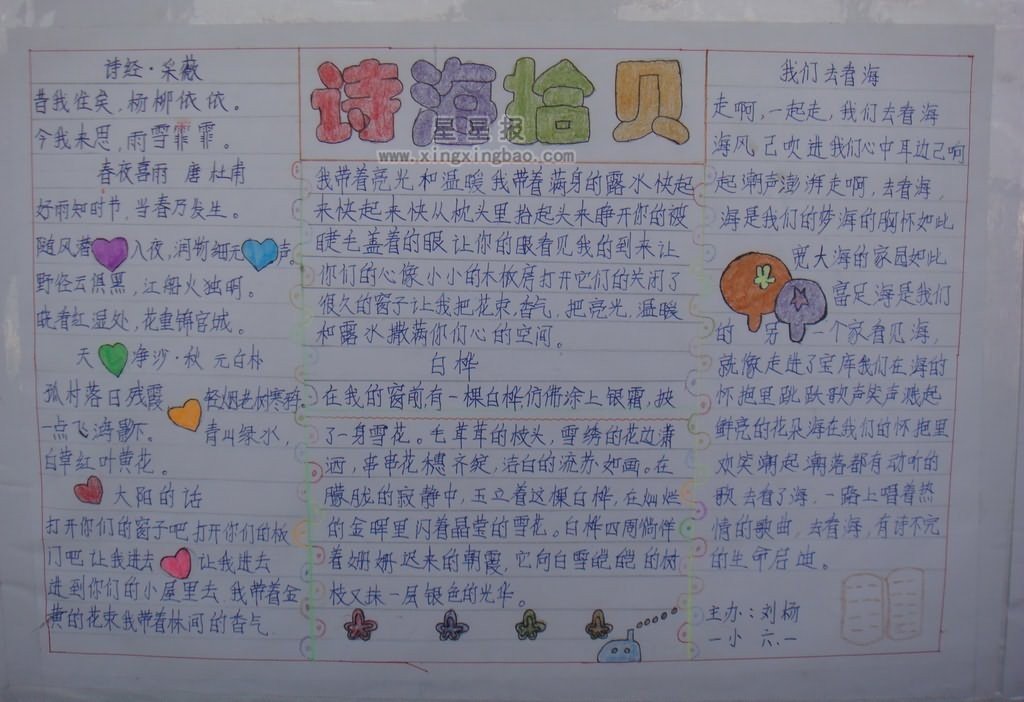 诗经·采薇
昔我往矣，杨柳依依。
今我来思，雨雪霏霏。
春夜喜雨 唐 杜甫
好雨知时节，当春乃发生。
随风潜入夜，润物细无声。
野径云俱黑，江船火独明。
晓看红湿处，花重锦官城。
天净沙·秋 元白朴
孤村落日残霞 轻烟老树寒鸦
一点飞鸿影下。 青山绿水，
白草红叶黄花。
太阳的话
打开你们的窗子吧，打开你们的板
门吧 让我进去 让我进去
进到你们的小屋里去 我带着金
黄的花束我带着林间的香气
诗海拾贝
星星报
www.xingxingbao.com
我带着亮光和温暖 我带着满身的露水 快起
来快起来 快从枕头里 抬起头来 睁开你的被
睫毛盖着的眼 让你的眼看见我的到来 让
你们的心像小小的木板房打开它们的关闭了
很久的窗子 让我把花束，香气，把亮光，温暖
和露水撒满你们心的空间。
白桦
在我的窗前，有一棵白桦，仿佛涂上银霜，披
了一身雪花。毛茸茸的枝头，雪绣的花边潇
洒，串串花穗齐绽，洁白的流苏如画。在
朦胧的寂静中，玉立着这棵白桦，在灿烂
的金晖里闪着晶莹的雪花。白桦四周徜徉
着姗姗迟来的朝霞，它向白雪皑皑的树
枝又抹一层银色的光华。
我们去看海
走啊，一起走，我们去看海
海风已吹进我们心中耳边已响
起潮声澎湃走啊，去看海，
海是我们的梦海的胸怀如此
宽大海的家园如此
富足海是我们
的 另 一个家看见海，
就像走进了宝库我们在海的
怀抱里跳跃歌声笑声溅起
鲜亮的花朵海在我们的怀抱里
欢笑潮起潮落都有动听的
歌 去看了海，一路上唱着热
情的歌曲，去看海，有诗不完
的生命后进。
主办：刘杨
一小 六.一